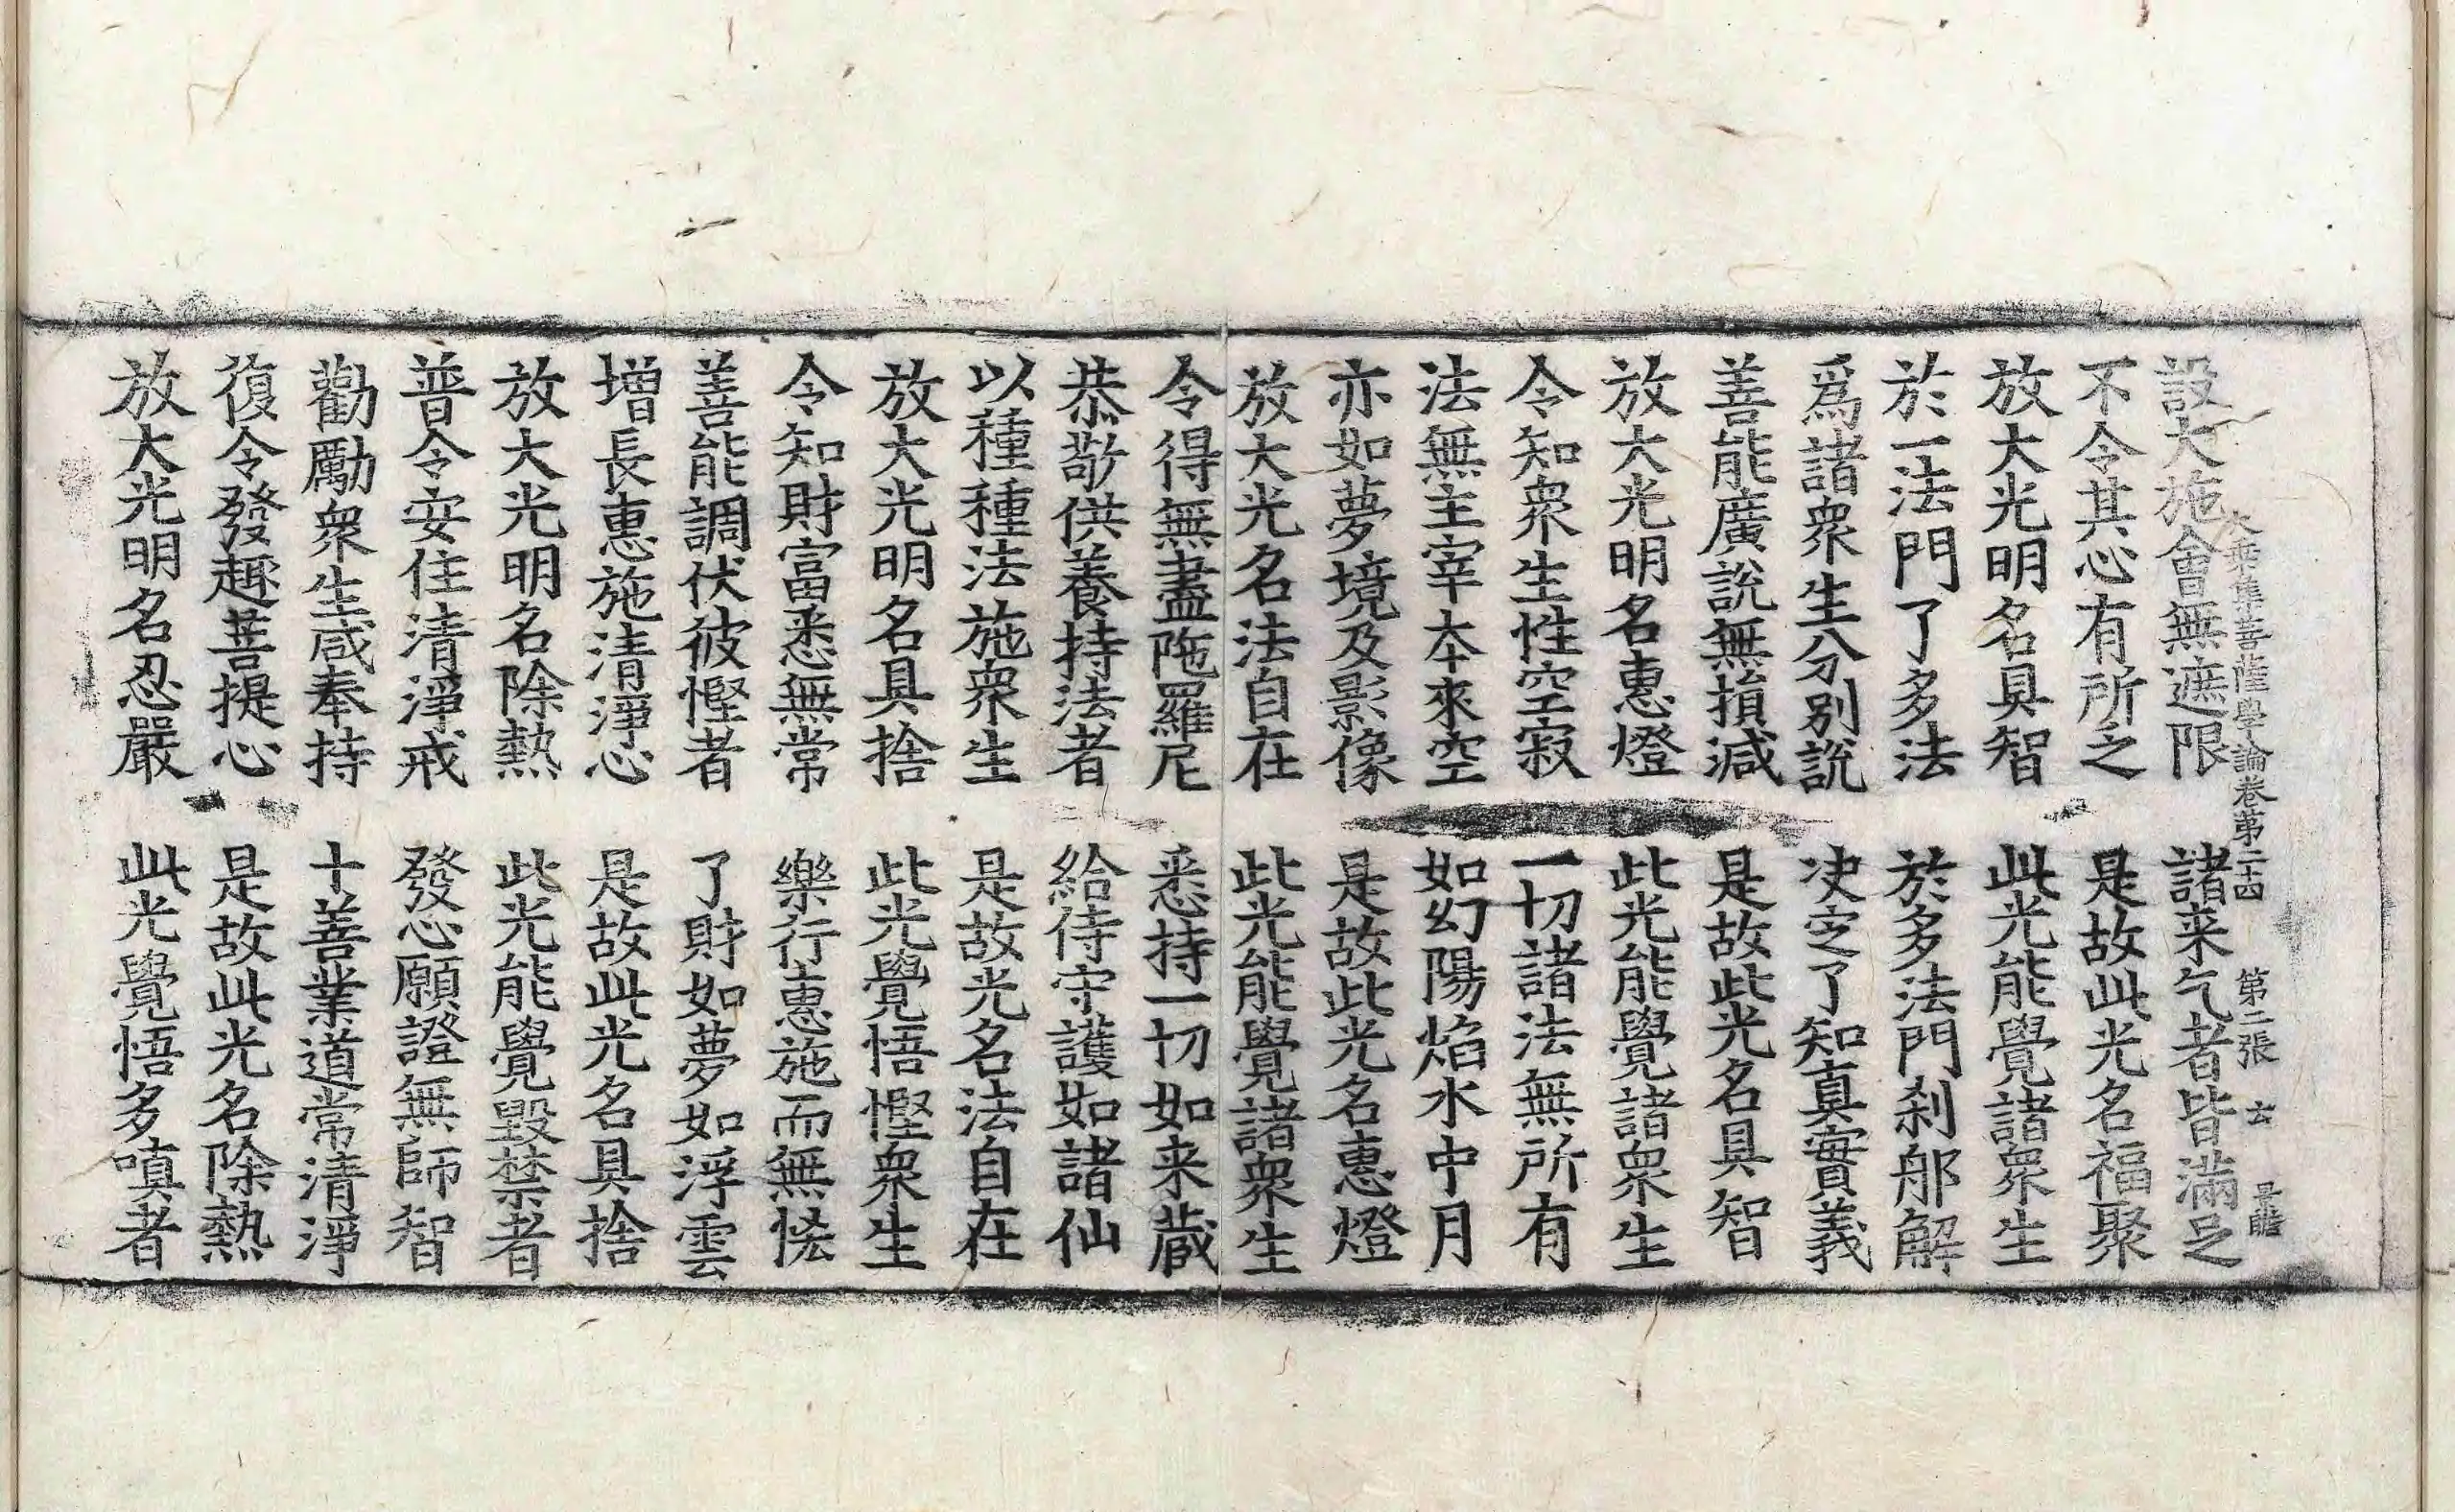 大乘集菩薩學論卷第二十四 第二張 玄
設大施會無遮限 諸来乞者皆滿足
不令其心有所之 是故此光名福聚
放大光明名具智 此光能覺諸衆生
於一法門了多法 於多法門刹那解
爲諸衆生分別說 决定了知真實義
善能廣説無損減 是故此光名具智
放大光明名惠燈 此光能覺諸衆生
令知衆生性空寂 一切諸法無所有
法無主宰夲來空 如幻陽焰水中月
亦如夢境及影像 是故此光名惠燈
放大光名法自在 此光能覺諸衆生
令得無盡陁羅尼 悉持一切如来蔵
恭敬供養持法者 給侍守護如諸仙
以種種法施衆生 是故光名法自在
放大光明名具捨 此光覺悟慳衆生
令知財富悉無常 樂行惠施而無恡
善能調伏彼慳者 了財如夢如浮雲
增長惠施清淨心 是故此光名具捨
放大光明名除熱 此光能覺毀禁者
普令安住清淨戒 發心願證無師智
勸勵衆生咸奉持 十善業道常清淨
復令發趣菩提心 是故此光名除熱
放大光明名忍嚴 此光覺悟多嗔者